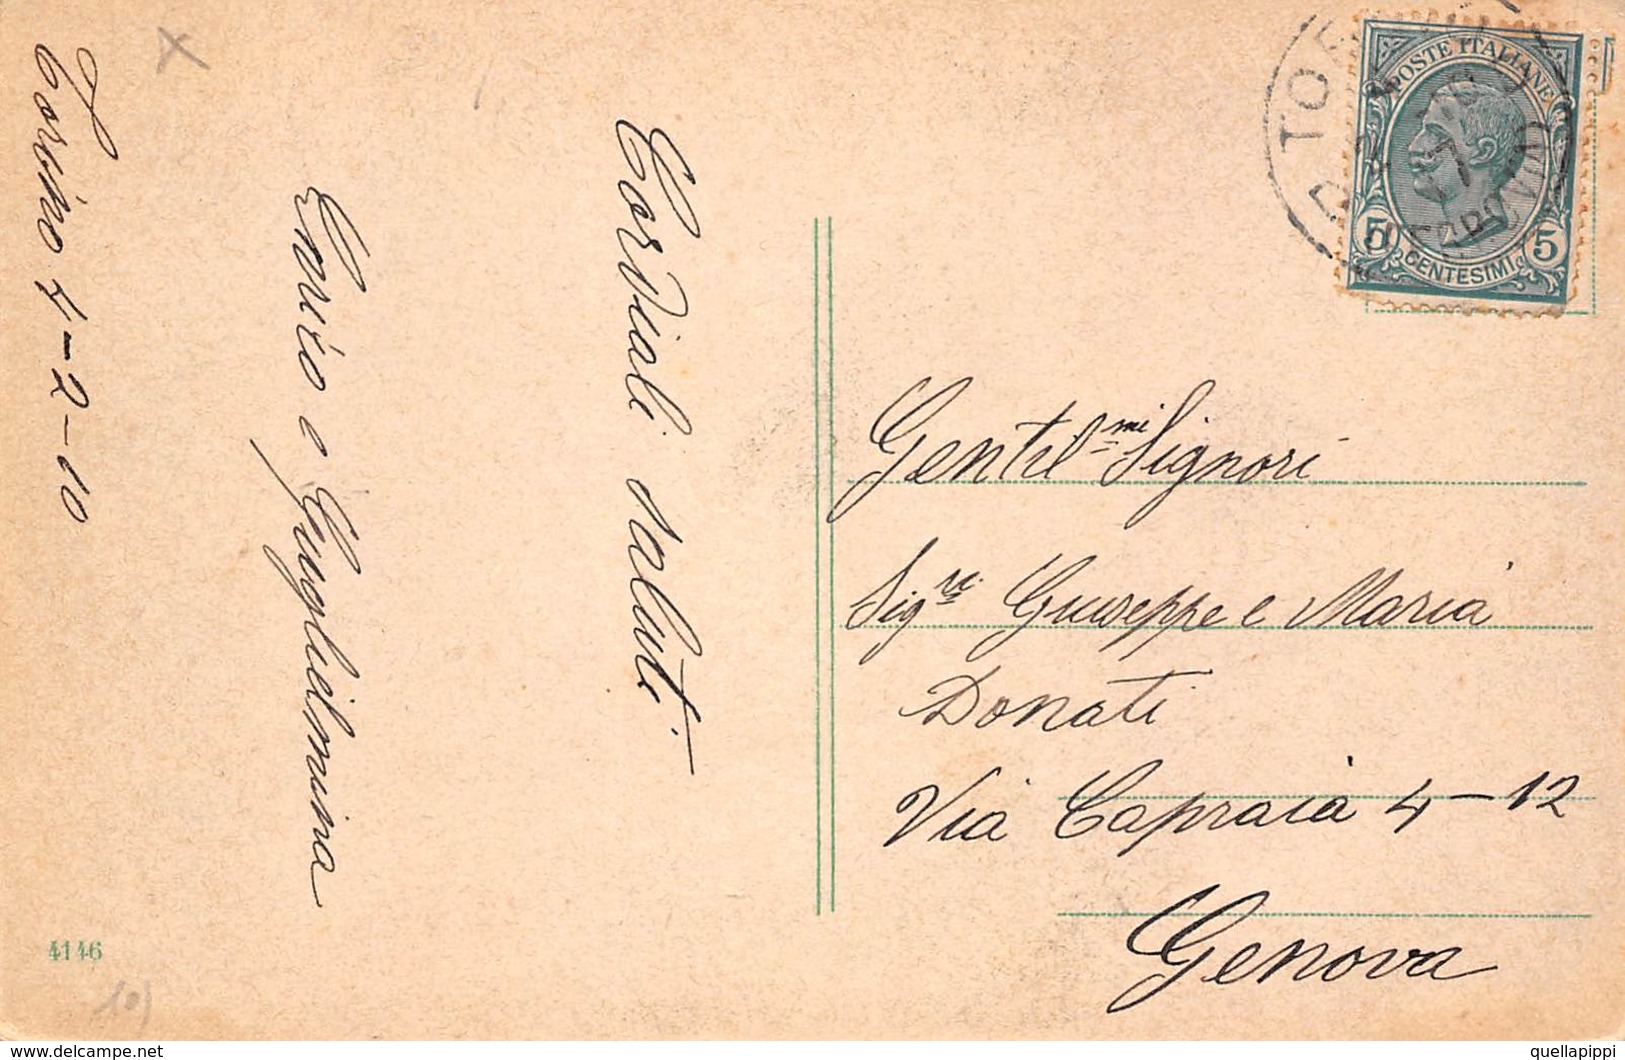 Torino 4-2-10
Cordiali saluti
Enrico e Guglielmina
POSTE ITALIANE
5 CENTESIMI 5
Gentil.mi Signori
Sig.ri Giuseppe e Maria
Donati
Via Capraia 4-12
Genova
4146
www.delcampe.net
quellapippi